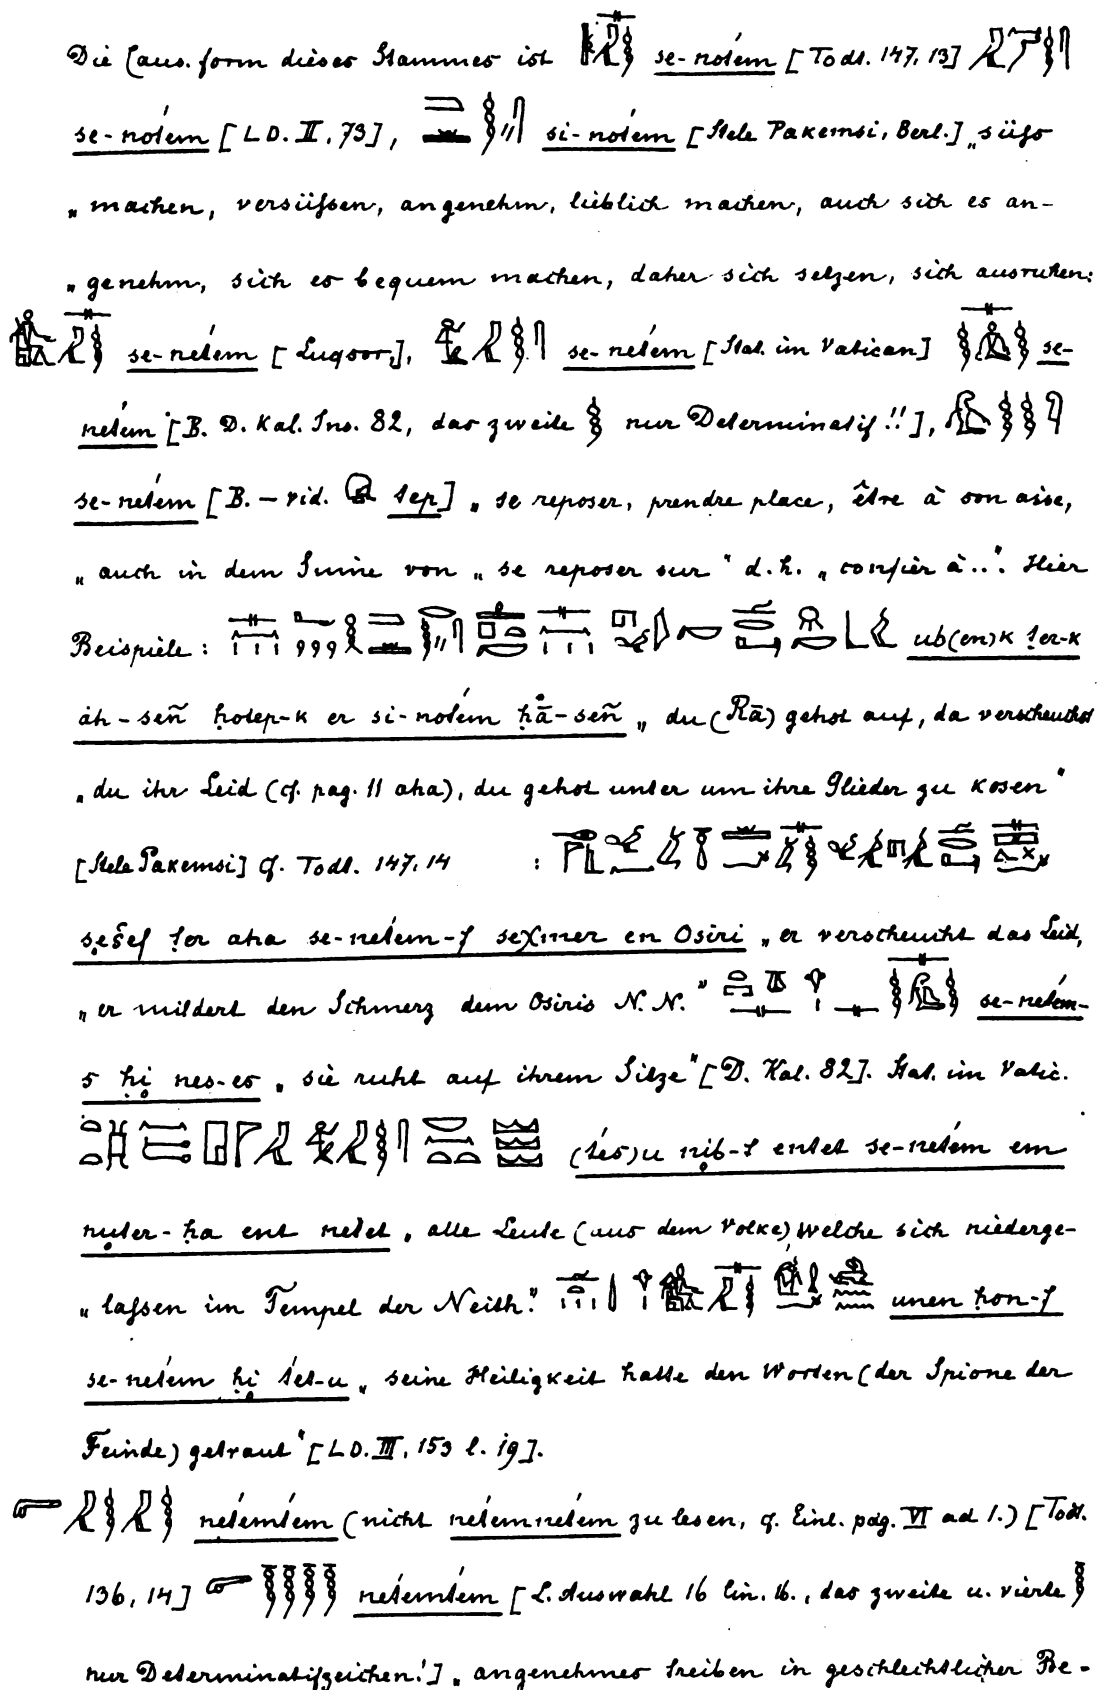 Die Caus. form dieses Stammes ist se-notém [Todt. 147, 13]
se-notém [LD. II, 73], si-notém [Stele Pakemsi, Berl.] „süſs
„machen, versüſsen, angenehm, lieblich machen, auch sich es an-
„genehm, sich es bequem machen, daher sich setzen, sich ausruhen:
se-netém [Luqsor], se-netém [Stat. im Vatican] se-
netém [B. D. Kal. Ins. 82, das zweite nur Determinatif!!],
se-netém [B. – vid. tep] „se reposer, prendre place, être à son aise,
„auch in dem Sinne von „se reposer sur“ d. h. „confier à..“. Hier
Beispiele: ub(en)k ter-k
áh-señ ḥotep-k er si-notém ḥā-señ „du (Rā) gehst auf, da verscheuchst
„du ihr Leid (cf. pag. 11 aha), du gehst unter um ihre Glieder zu kosen“
[Stele Pakemsi] cf. Todt. 147, 14 :
seśef ter aha se-netém-f seχmer en Osiri „er verscheucht das Leid,
„er mildert den Schmerz dem Osiris N. N.“ se-netém-
s ḥi nes-es „sie ruht auf ihrem Sitze“ [D. Kal. 82]. Stat. im Vatic.
(tés)u nib-f entet se-netém em
nuter-ḥa ent netet „alle Leute (aus dem Volke) welche sich niederge-
„laſsen im Tempel der Neith“. unen ḥon-f
se-netém ḥi tét-u „seine Heiligkeit hatte den Worten (der Spione der
Feinde) getraut“ [LD. III, 153 l. 19].
netémtém (nicht netémnetém zu lesen, cf. Einl. pag. VI ad 1.) [Todt.
136, 14] netémtém [L. Auswahl 16 lin. 16., das zweite u. vierte
nur Determinatifzeichen!] „angenehmes treiben in geschlechtlicher Be-